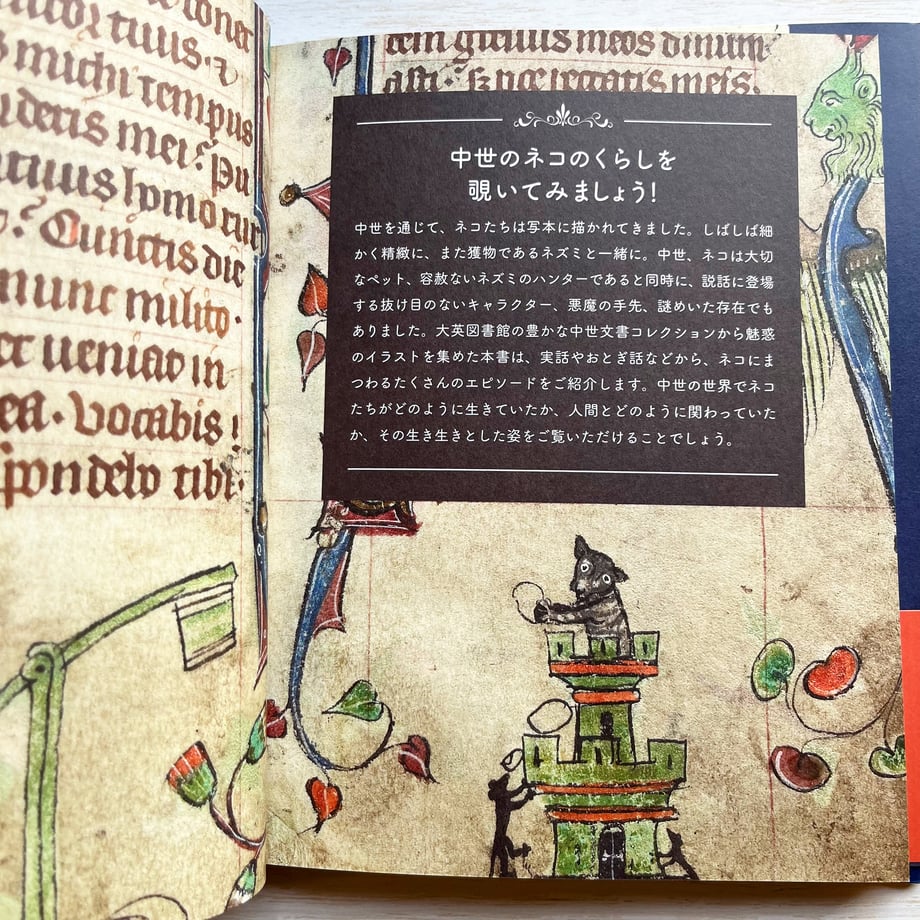 michi tempus
mei?
lymo
Cunctis die
nunc milito.
ueniao in
vocabis
tibi.
meos
中世のネコのくらしを
覗いてみましょう!
中世を通じて、ネコたちは写本に描かれてきました。しばしば細
かく精緻に、また獲物であるネズミと一緒に。中世、ネコは大切
なペット、容赦ないネズミのハンターであると同時に、説話に登場
する抜け目のないキャラクター、悪魔の手先、謎めいた存在でも
ありました。大英図書館の豊かな中世文書コレクションから魅惑
のイラストを集めた本書は、実話やおとぎ話などから、ネコにま
つわるたくさんのエピソードをご紹介します。中世の世界でネコ
たちがどのように生きていたか、人間とどのように関わっていた
か、その生き生きとした姿をご覧いただけることでしょう。